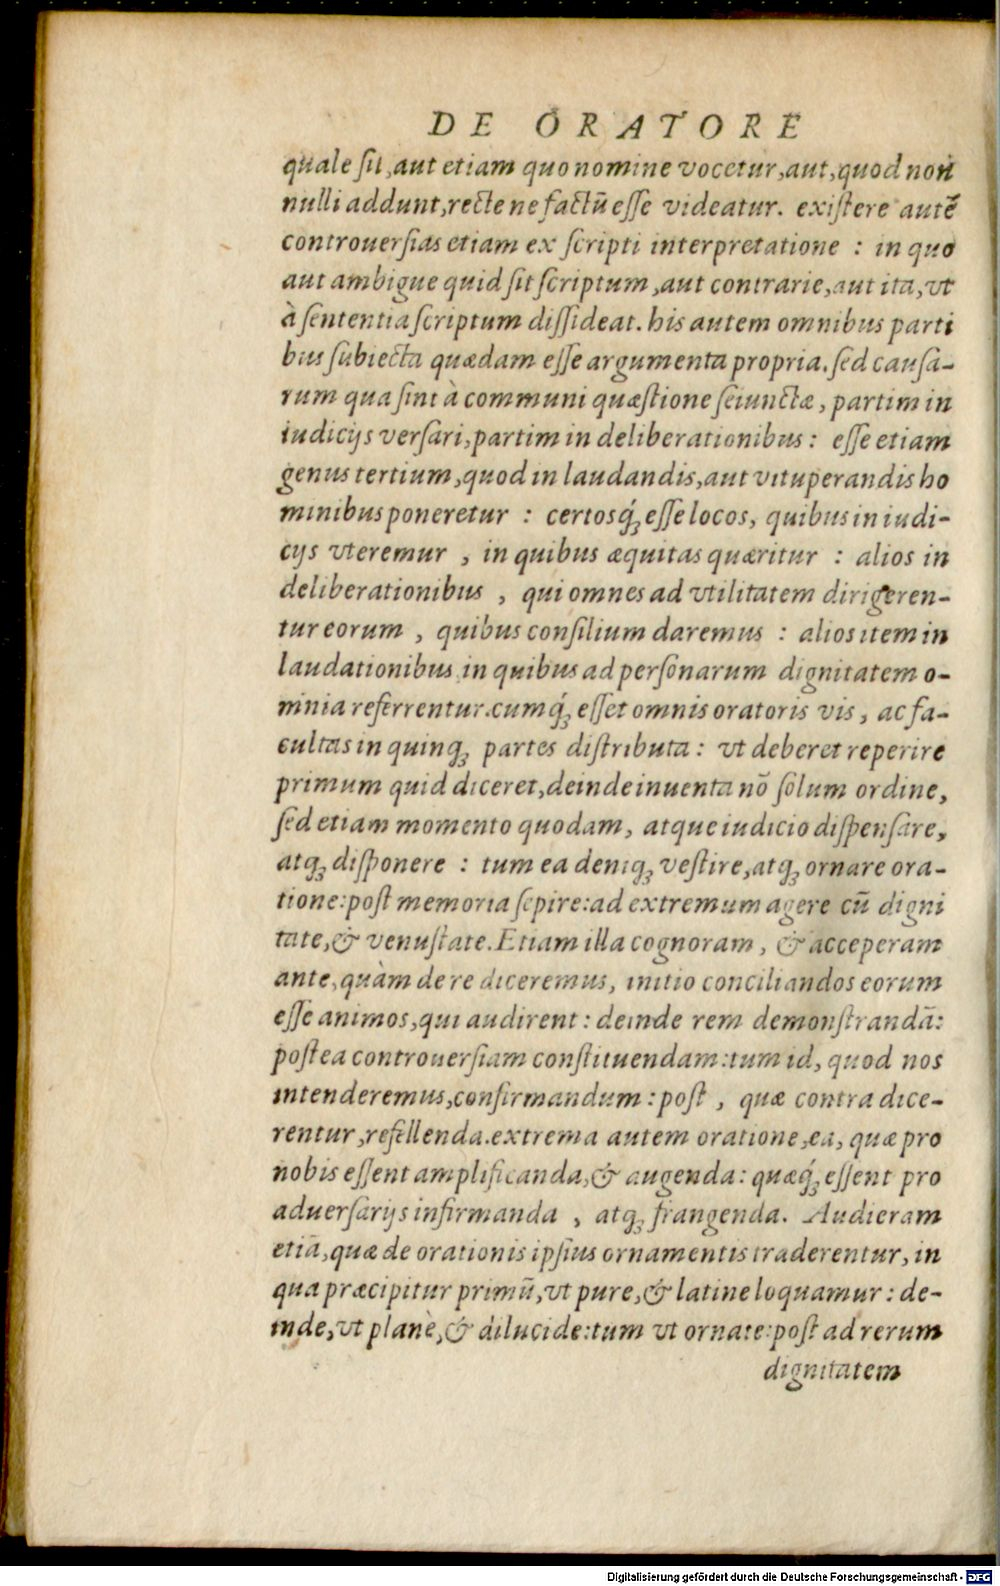 DE ORATORE
quale sit, aut etiam quo nomine vocetur, aut, quod non
nulli addunt, recte ne factū esse videatur. existere autē
controuersias etiam ex scripti interpretatione : in quo
aut ambigue quid sit scriptum, aut contrarie, aut ita, vt
à sententia scriptum dissideat. his autem omnibus parti
bus subiecta quædam esse argumenta propria. sed causa-
rum qua sint à communi quæstione seiunctæ, partim in
iudicijs versari, partim in deliberationibus : esse etiam
genus tertium, quod in laudandis, aut vituperandis ho
minibus poneretur : certosq́; esse locos, quibus in iudi-
cijs vteremur , in quibus æquitas quæritur : alios in
deliberationibus , qui omnes ad vtilitatem dirigeren-
tur eorum , quibus consilium daremus : alios item in
laudationibus in quibus ad personarum dignitatem o-
mnia referrentur. cumq́; esset omnis oratoris vis, ac fa-
cultas in quinq; partes distributa : vt deberet reperire
primum quid diceret, deinde inuenta nō solum ordine,
sed etiam momento quodam, atque iudicio dispensare,
atq; disponere : tum ea deniq; vestire, atq; ornare ora-
tione: post memoria sepire: ad extremum agere cū digni
tate, & venustate. Etiam illa cognoram, & acceperam
ante, quàm de re diceremus, initio conciliandos eorum
esse animos, qui audirent : deinde rem demonstrandā:
postea controuersiam constituendam: tum id, quod nos
intenderemus, confirmandum : post , quæ contra dice-
rentur, refellenda. extrema autem oratione, ea, quæ pro
nobis essent amplificanda, & augenda: quæq́; essent pro
aduersarijs infirmanda , atq; frangenda. Audieram
etiā, quæ de orationis ipsius ornamentis traderentur, in
qua præcipitur primū, vt pure, & latine loquamur : de-
inde, vt planè, & dilucide: tum vt ornate: post ad rerum
dignitatem
Digitalisierung gefördert durch die Deutsche Forschungsgemeinschaft - DFG